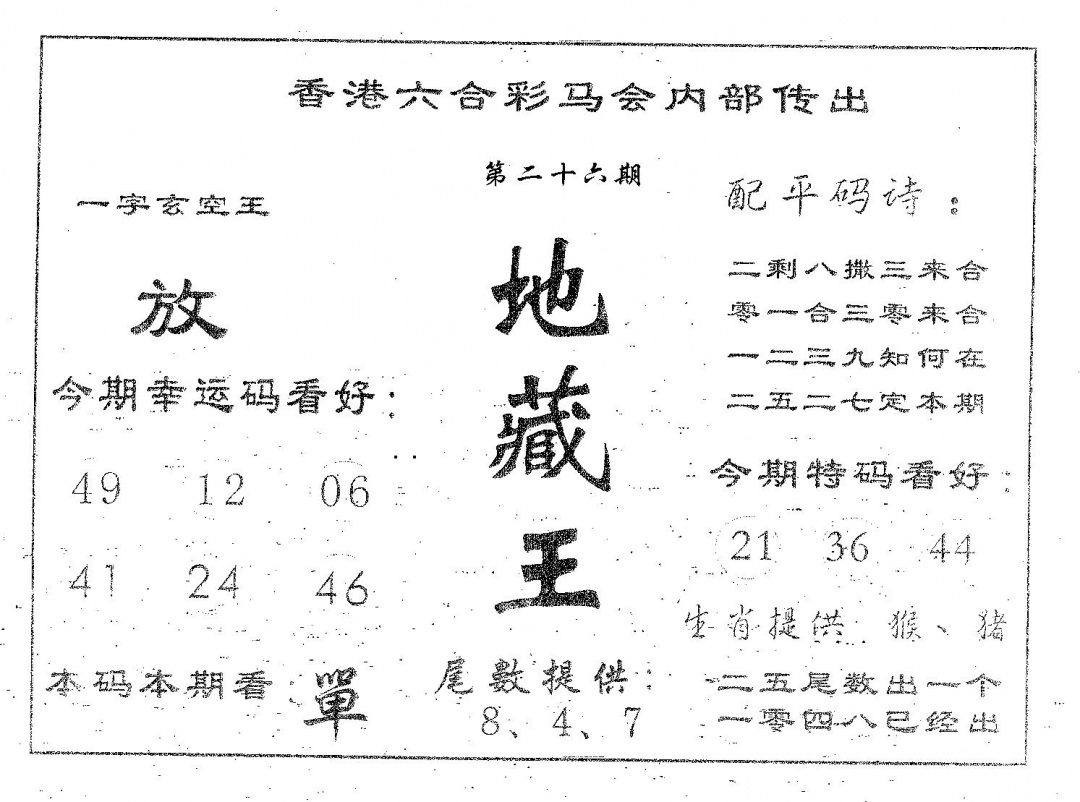 香港六合彩马会内部传出
第二十六期
一字玄空王
放
今期幸运码看好:
49 12 06
41 24 46
本码本期看: 單
地
藏
王
尾數提供:
8、4、7
配平码诗:
二剩八撒三来合
零一合三零来合
一二三九知何在
二五二七定本期
今期特码看好:
21 36 44
生肖提供: 猴、猪
二五尾数出一个
一零四八已经出